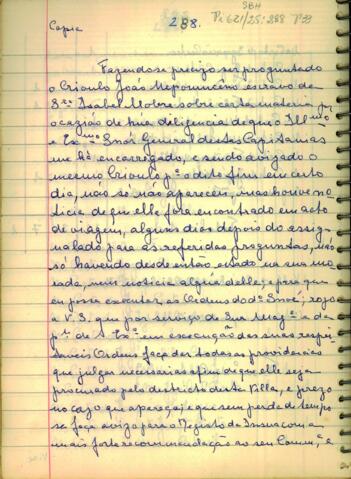 Copia
288.
SBH
Pi 621/25:288 P39
Fazendose precizo ser proguntado
o Crioulo João Nepomuceno escravo de
Isabel Mobre sobre certa materia pr
ocazião de hua diligencia de que o Illmo
e Exmo Snor General destas Capitanias
me há encarregado, e sendo avizado o
mesmo Crioulo pa o dto fim em certo
dia, não só não apareceu, mas houve no-
ticia de que elle fora encontrado em acto
de viagem, alguns dias depois do assig-
nalado para as referidas proguntas, não
só havendo desde então estado na sua mo-
rada, nem noticia algua delle; e pra que
eu possa executar, as Ordens do do Snor; rogo
a V. S. que por serviço de Sua Mage e da
pte de S. Exa em execução das suas respei-
taveis Ordens faça dar todas as providencias
que julgar necessarias afim de que elle seja
procurado pelo districto desta Villa, e prezo
no cazo que apareça; e que sem perda de tempo
se faça avizo para o Registo da Insua com a
mais forte recommendação ao seu Comme, e